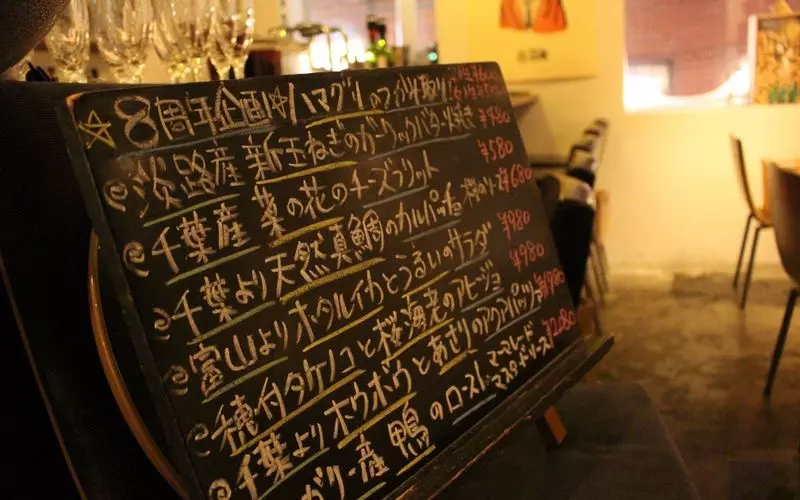 ☆8周年企画☆ハマグリのつかみ取り
@淡路産 新玉ねぎのガーリックバター焼き ¥480
@千葉産 菜の花のチーズフリット ¥580
@千葉より天然真鯛のカルパッチョ 桜のソース ¥680
@富山よりホタルイカとうるいのサラダ ¥980
@穂付タケノコと桜海老のアヒージョ ¥980
@千葉よりホウボウとあさりのアクアパッツァ
@ガリー産 鴨のロースト マーマレードマスタードソース